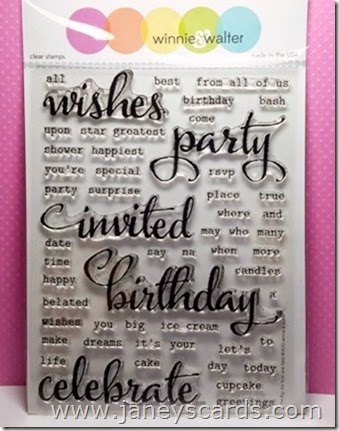 winnie & walter
clear stamps made in the USA
all best from all of us
wishes birthday bash
come
upon star greatest party
shower happiest
you're special rsvp
party surprise place true
invited where and
may who many
date say na when more
time candles
happy birthday
belated
wishes you big ice cream
make dreams it's your let's to
life cake day today
celebrate cupcake
greetings
www.janeyscards.com